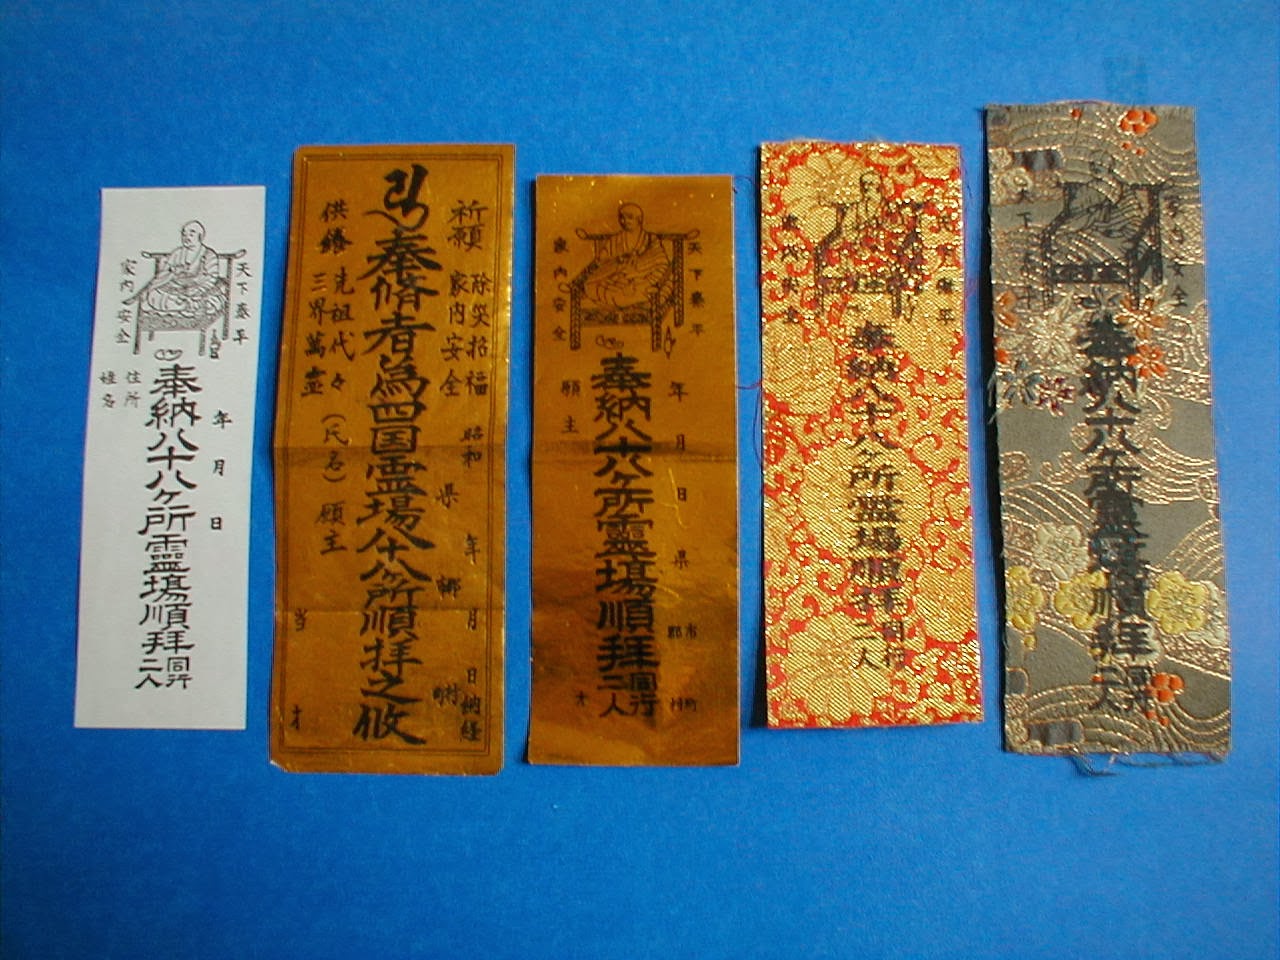 天下泰平
家内安全
奉納八十八ヶ所霊場順拝同行二人
年月日
住所
姓名
祈願 除災招福
家内安全
昭和 年 月 日納経
県 郡 村
町
奉脩者為四国霊場八十八ヶ所順拝之攸
供養 先祖代々(氏名)願主
三界萬霊
当 才
天下泰平
家内安全
年月日 県 市郡 町村
奉納八十八ヶ所霊場順拝同行二人
願主
才
家内安全
奉納八十八ヶ所霊場順拝同行二人
天下泰平
奉納八十八ヶ所霊場順拝同行二人